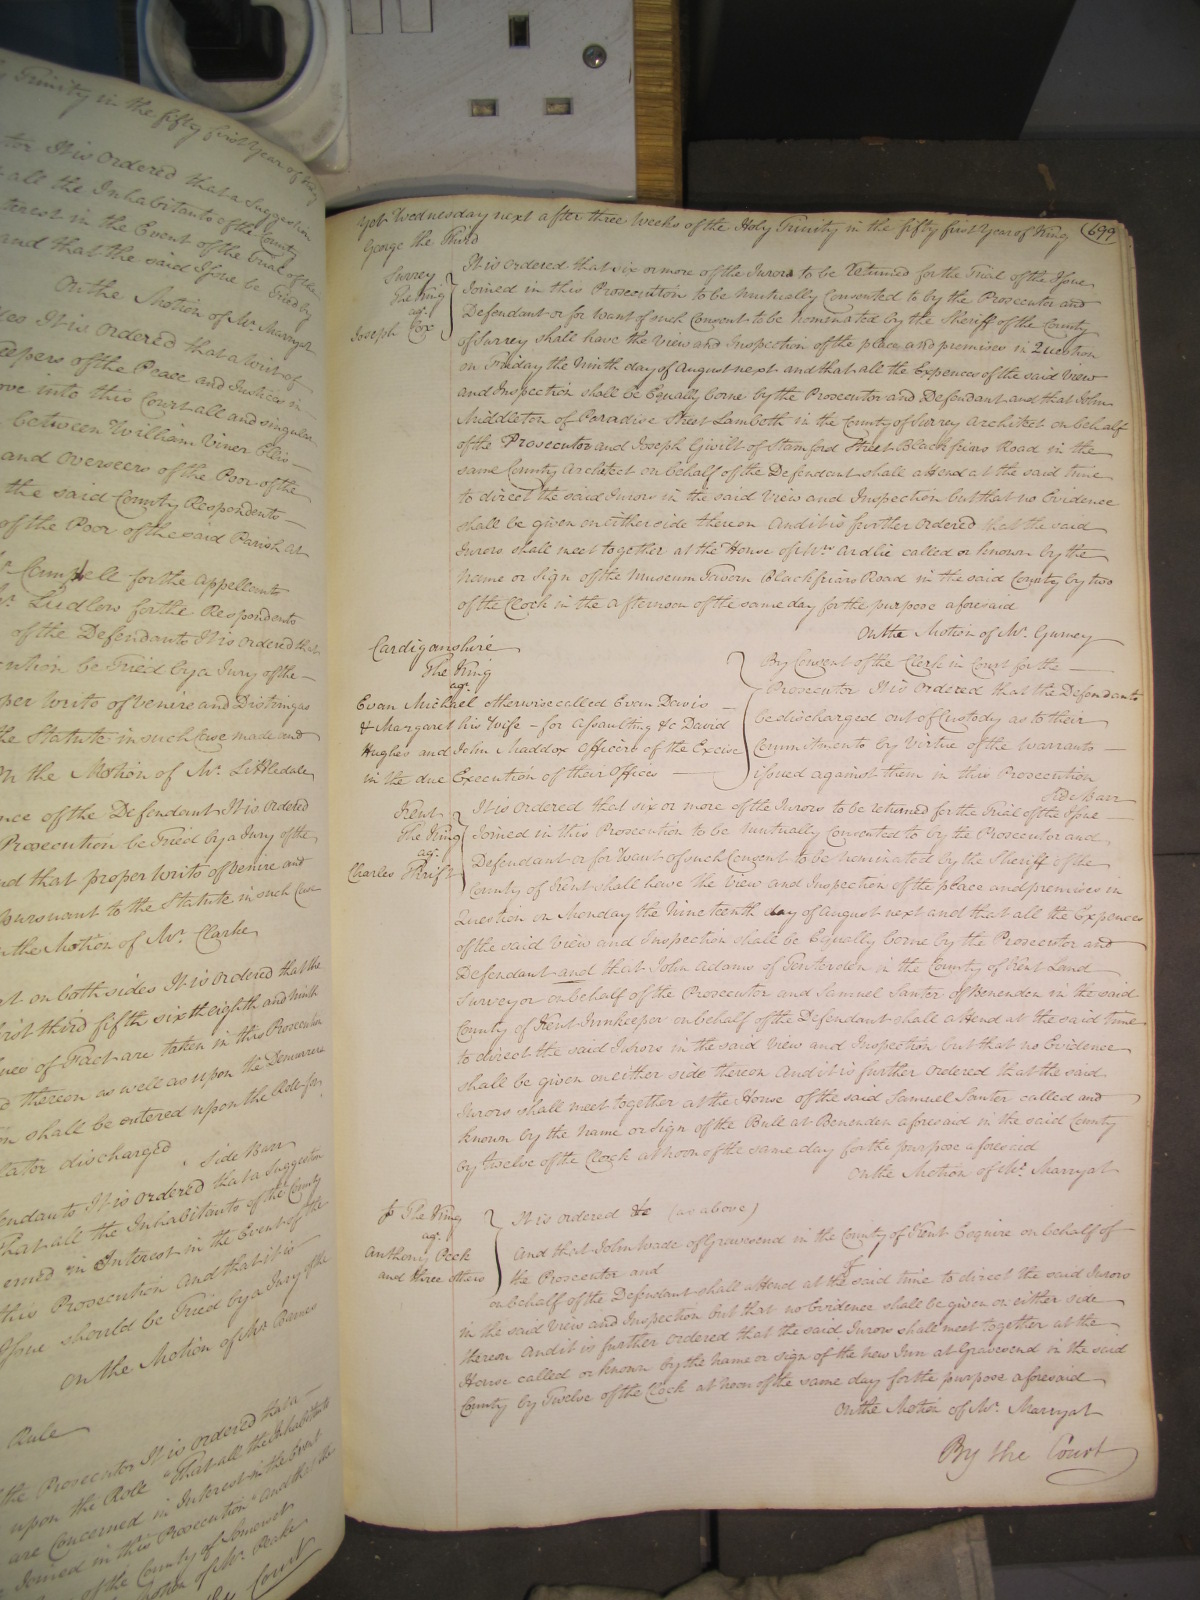 y Trinity in the fifty first Year of King
tor It is ordered that a Suggestion
all the Inhabitants of the County
terest in the Event of the trial of the
and that the said Issue be tried by
On the Motion of Mr. Marryat
It is ordered that a writ of
eepers of the Peace and Justices in
ove into this Court all and singular
between William Viner Ellis
and Overseers of the Poor of the
the said County Respondents
of the Poor of the said Parish at
Campbell for the Appellants
Mr. Ludlow for the Respondents
of the Defendants It is ordered that
cution be Tried by a Jury of the
per writs of Venire and Distringas
the Statute in such case made and
On the Motion of Mr. Littledale
nce of the Defendant It is ordered
Prosecution be Tried by a Jury of the
nd that proper writs of Venire and
Pursuant to the Statute in such Case
n the Motion of Mr. Clarke
on both sides It is ordered that the
first third fifth sixth eighth and ninth
ues of Fact are taken in this Prosecution
d thereon as well as upon the Demurrers
shall be entered upon the
lator discharged
Side Barr
fendants It is ordered that a Suggestion
that all the Inhabitants of the County
erned in Interest in the Event of the
this Prosecution And that it is
Issue should be Tried by a Jury of the
On the Motion of Mr. Barnes
Rule
the Prosecutor It is ordered that a
upon the Roll "That all the Inhabitants
are Concerned in Interest in the Event
Joined in this Prosecution" and that the
of the County of Somerset
Motion of Mr. Peake
By the Court
Yet Wednesday next after three Weeks of the Holy Trinity in the fifty first Year of King 699
George the Third
Surrey
The King
agt.
Joseph Cox
It is ordered that six or more of the Jurors to be returned for the Trial of the Issue
Joined in this Prosecution to be mutually Consented to by the Prosecutor and
Defendant or for want of such Consent to be nominated by the Sheriff of the County
of Surrey shall have the View and Inspection of the place and premises in Question
on Friday the Ninth day of August next and that all the Expences of the said View
and Inspection shall be Equally borne by the Prosecutor and Defendant and that John
Middleton of Paradise Street Lambeth in the County of Surrey Architect on behalf
of the Prosecutor and Joseph Gwilt of Stamford Street Blackfriars Road in the
same County Architect on behalf of the Defendant shall attend at the said time
to direct the said Jurors in the said View and Inspection but that no Evidence
shall be given on either side thereon And it is further ordered that the said
Jurors shall meet together at the House of Mrs. Ardlie called or known by the
Name or Sign of the Museum Tavern Blackfriars Road in the said County by two
of the Clock in the afternoon of the same day for the purpose aforesaid
On the Motion of Mr. Gurney
Cardiganshire
The King
agt.
Evan Michael otherwise called Evan Davis
& Margaret his Wife – for assaulting &c David
Hughes and John Maddox Officers of the Excise
in the due Execution of their Offices
By Consent of the Clerk in Court for the
Prosecutor It is ordered that the Defendants
be discharged out of Custody as to their
Commitments by Virtue of the Warrants
issued against them in this Prosecution
Side Barr
Kent
The King
agt.
Charles Thrift
It is ordered that six or more of the Jurors to be returned for the Trial of the Issue
Joined in this Prosecution to be mutually Consented to by the Prosecutor and
Defendant or for Want of such Consent to be nominated by the Sheriff of the
County of Kent shall have the View and Inspection of the place and premises in
Question on Monday the Nineteenth day of August next and that all the Expences
of the said View and Inspection shall be Equally borne by the Prosecutor and
Defendant and that John Adams of Tenterden in the County of Kent Land
Surveyor on behalf of the Prosecutor and Samuel Santer of Benenden in the said
County of Kent Innkeeper on behalf of the Defendant shall attend at the said time
to direct the said Jurors in the said View and Inspection but that no Evidence
shall be given on either side thereon And it is further ordered that the said
Jurors shall meet together at the House of the said Samuel Santer called and
known by the Name or Sign of the Bull at Benenden aforesaid in the said County
by twelve of the Clock at noon of the same day for the purpose aforesaid
On the Motion of Mr. Marryat
The King
agt.
Anthony Peck
and three others
It is ordered &c (as above)
And that John Wade of Gravesend in the County of Kent Esquire on behalf of
the Prosecutor and
on behalf of the Defendant shall attend at the said time to direct the said Jurors
in the said View and Inspection but that no Evidence shall be given on either side
thereon And it is further ordered that the said Jurors shall meet together at the
House called or known by the name or sign of the New Inn at Gravesend in the said
County by Twelve of the Clock at noon of the same day for the purpose aforesaid
On the Motion of Mr. Marryat
By the Court